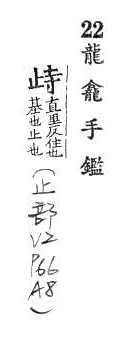 22龍龕手鑑
歭直里反住也
基也止也
(止部V2
P66
A8)